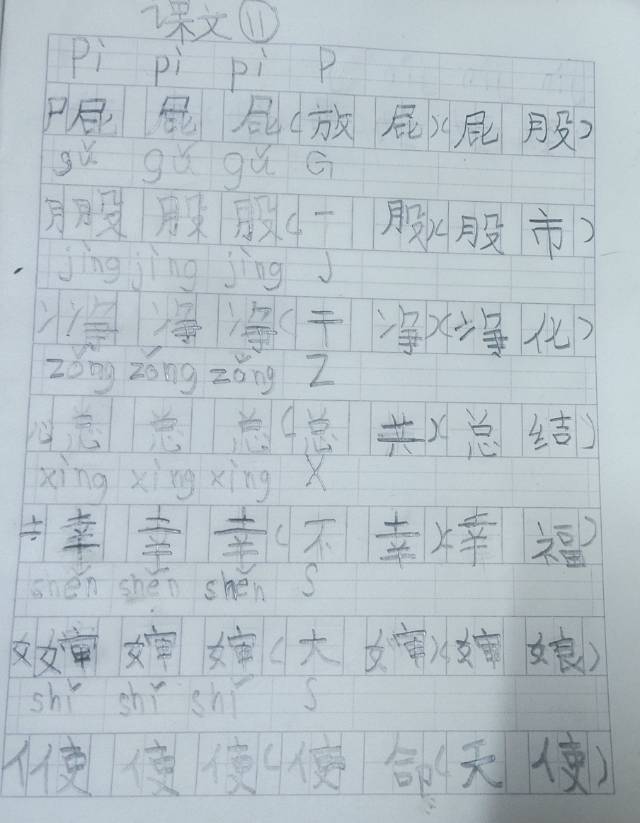 课文⑪
pì pì pì P
尸屁 屁 屁(放 屁)(屁 股)
gǔ gǔ gǔ G
月股 股 股(一 股)(股 市)
jìng jìng jìng J
冫净 净 净(干 净)(净 化)
zǒng zǒng zǒng Z
心总 总 总(总 共)(总 结)
xìng xìng xìng X
土幸 幸 幸(不 幸)(幸 福)
shěn shěn shěn S
女婶 婶 婶(大 婶)(婶 娘)
shǐ shǐ shǐ S
亻使 使 使(使 命)(天 使)